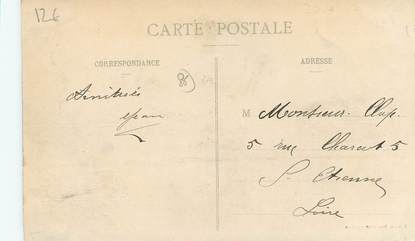 126
CARTE POSTALE
CORRESPONDANCE
ADRESSE
Amitiés
8
M Monsieur Clap.
5 rue Charcot 5
St Etienne
Loire